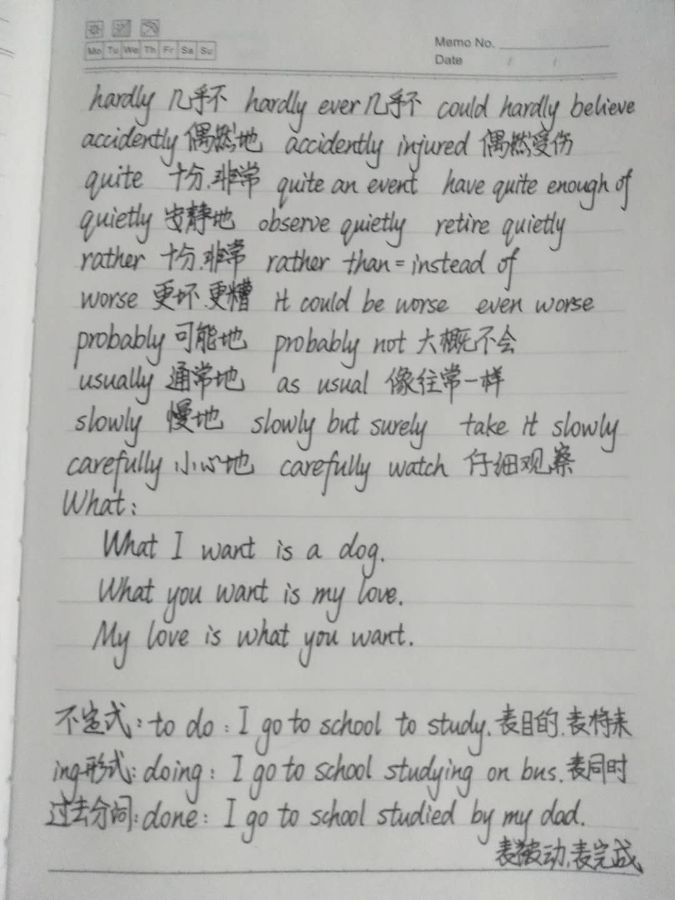 Mo Tu We Th Fr Sa Su
Memo No.
Date / /
hardly 几乎不 hardly ever 几乎不 could hardly believe
accidently 偶然地 accidently injured 偶然受伤
quite 十分.非常 quite an event have quite enough of
quietly 安静地 observe quietly retire quietly
rather 十分.非常 rather than = instead of
worse 更坏.更糟 it could be worse even worse
probably 可能地 probably not 大概不会
usually 通常地 as usual 像往常一样
slowly 慢地 slowly but surely take it slowly
carefully 小心地 carefully watch 仔细观察
What:
What I want is a dog.
What you want is my love.
My love is what you want.
不定式: to do: I go to school to study. 表目的.表将来
ing形式: doing: I go to school studying on bus. 表同时
过去分词: done: I go to school studied by my dad.
表被动.表完成